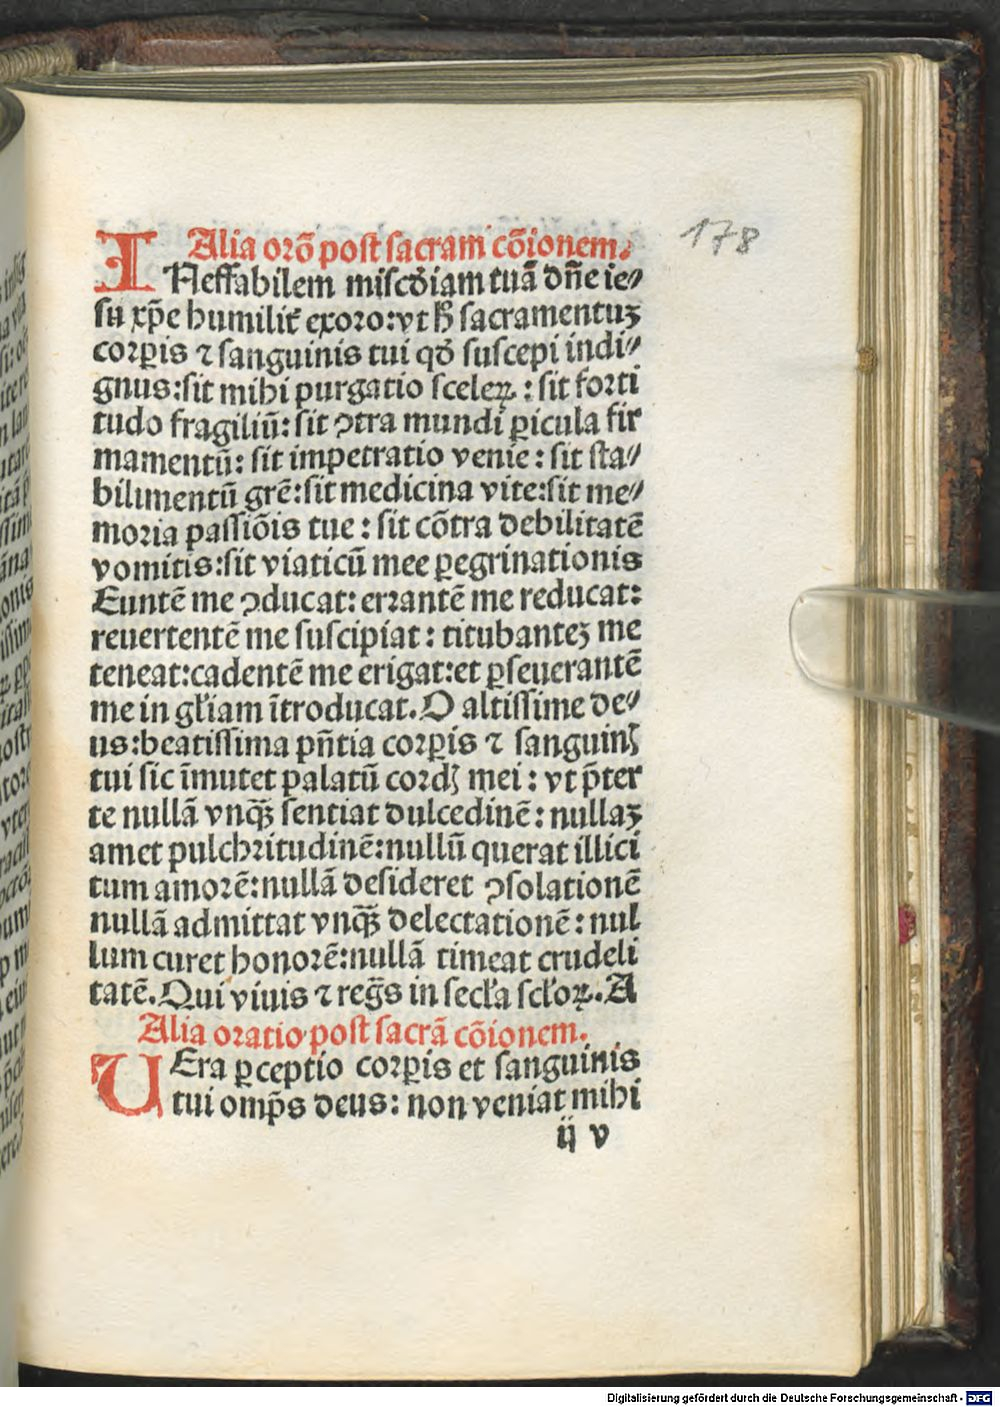 Alia orō post sacram cōionem.
INeffabilem miscďiam tuā dñe ie⸗
su xp̄e humiliť exoro: vt h̄ sacramentuꝫ
corꝑis ⁊ sanguinis tui qď suscepi indi⸗
gnus: sit mihi purgatio sceleꝝ: sit forti
tudo fragiliū: sit ꝯtra mundi ꝑicula fir
mamentū: sit impetratio venie: sit sta⸗
bilimentū grē: sit medicina vite: sit me⸗
moria passiōis tue: sit cōtra debilitatē
vomitis: sit viaticū mee ꝑegrinationis
Euntē me ꝯducat: errantē me reducat:
reuertentē me suscipiat: titubanteꝫ me
teneat: cadentē me erigat: et ꝑseuerantē
me in gľiam ītroducat. O altissime de⸗
us: beatissima pñtia corꝑis ⁊ sanguinꝭ
tui sic īmutet palatū cordꝭ mei: vt p̄ter
te nullā vnqꝫ̄ sentiat dulcedinē: nullaꝫ
amet pulchritudinē: nullū querat illici
tum amorē: nullā desideret ꝯsolationē
nullā admittat vnqꝫ̄ delectationē: nul
lum curet honorē: nullā timeat crudeli
tatē. Qui viuis ⁊ reḡs in secľa scľoꝝ. A
Alia oratio post sacrā cōionem.
UEra ꝑceptio corꝑis et sanguinis
tui omp̄s deus: non veniat mihi
ij v
178
Digitalisierung gefördert durch die Deutsche Forschungsgemeinschaft - DFG